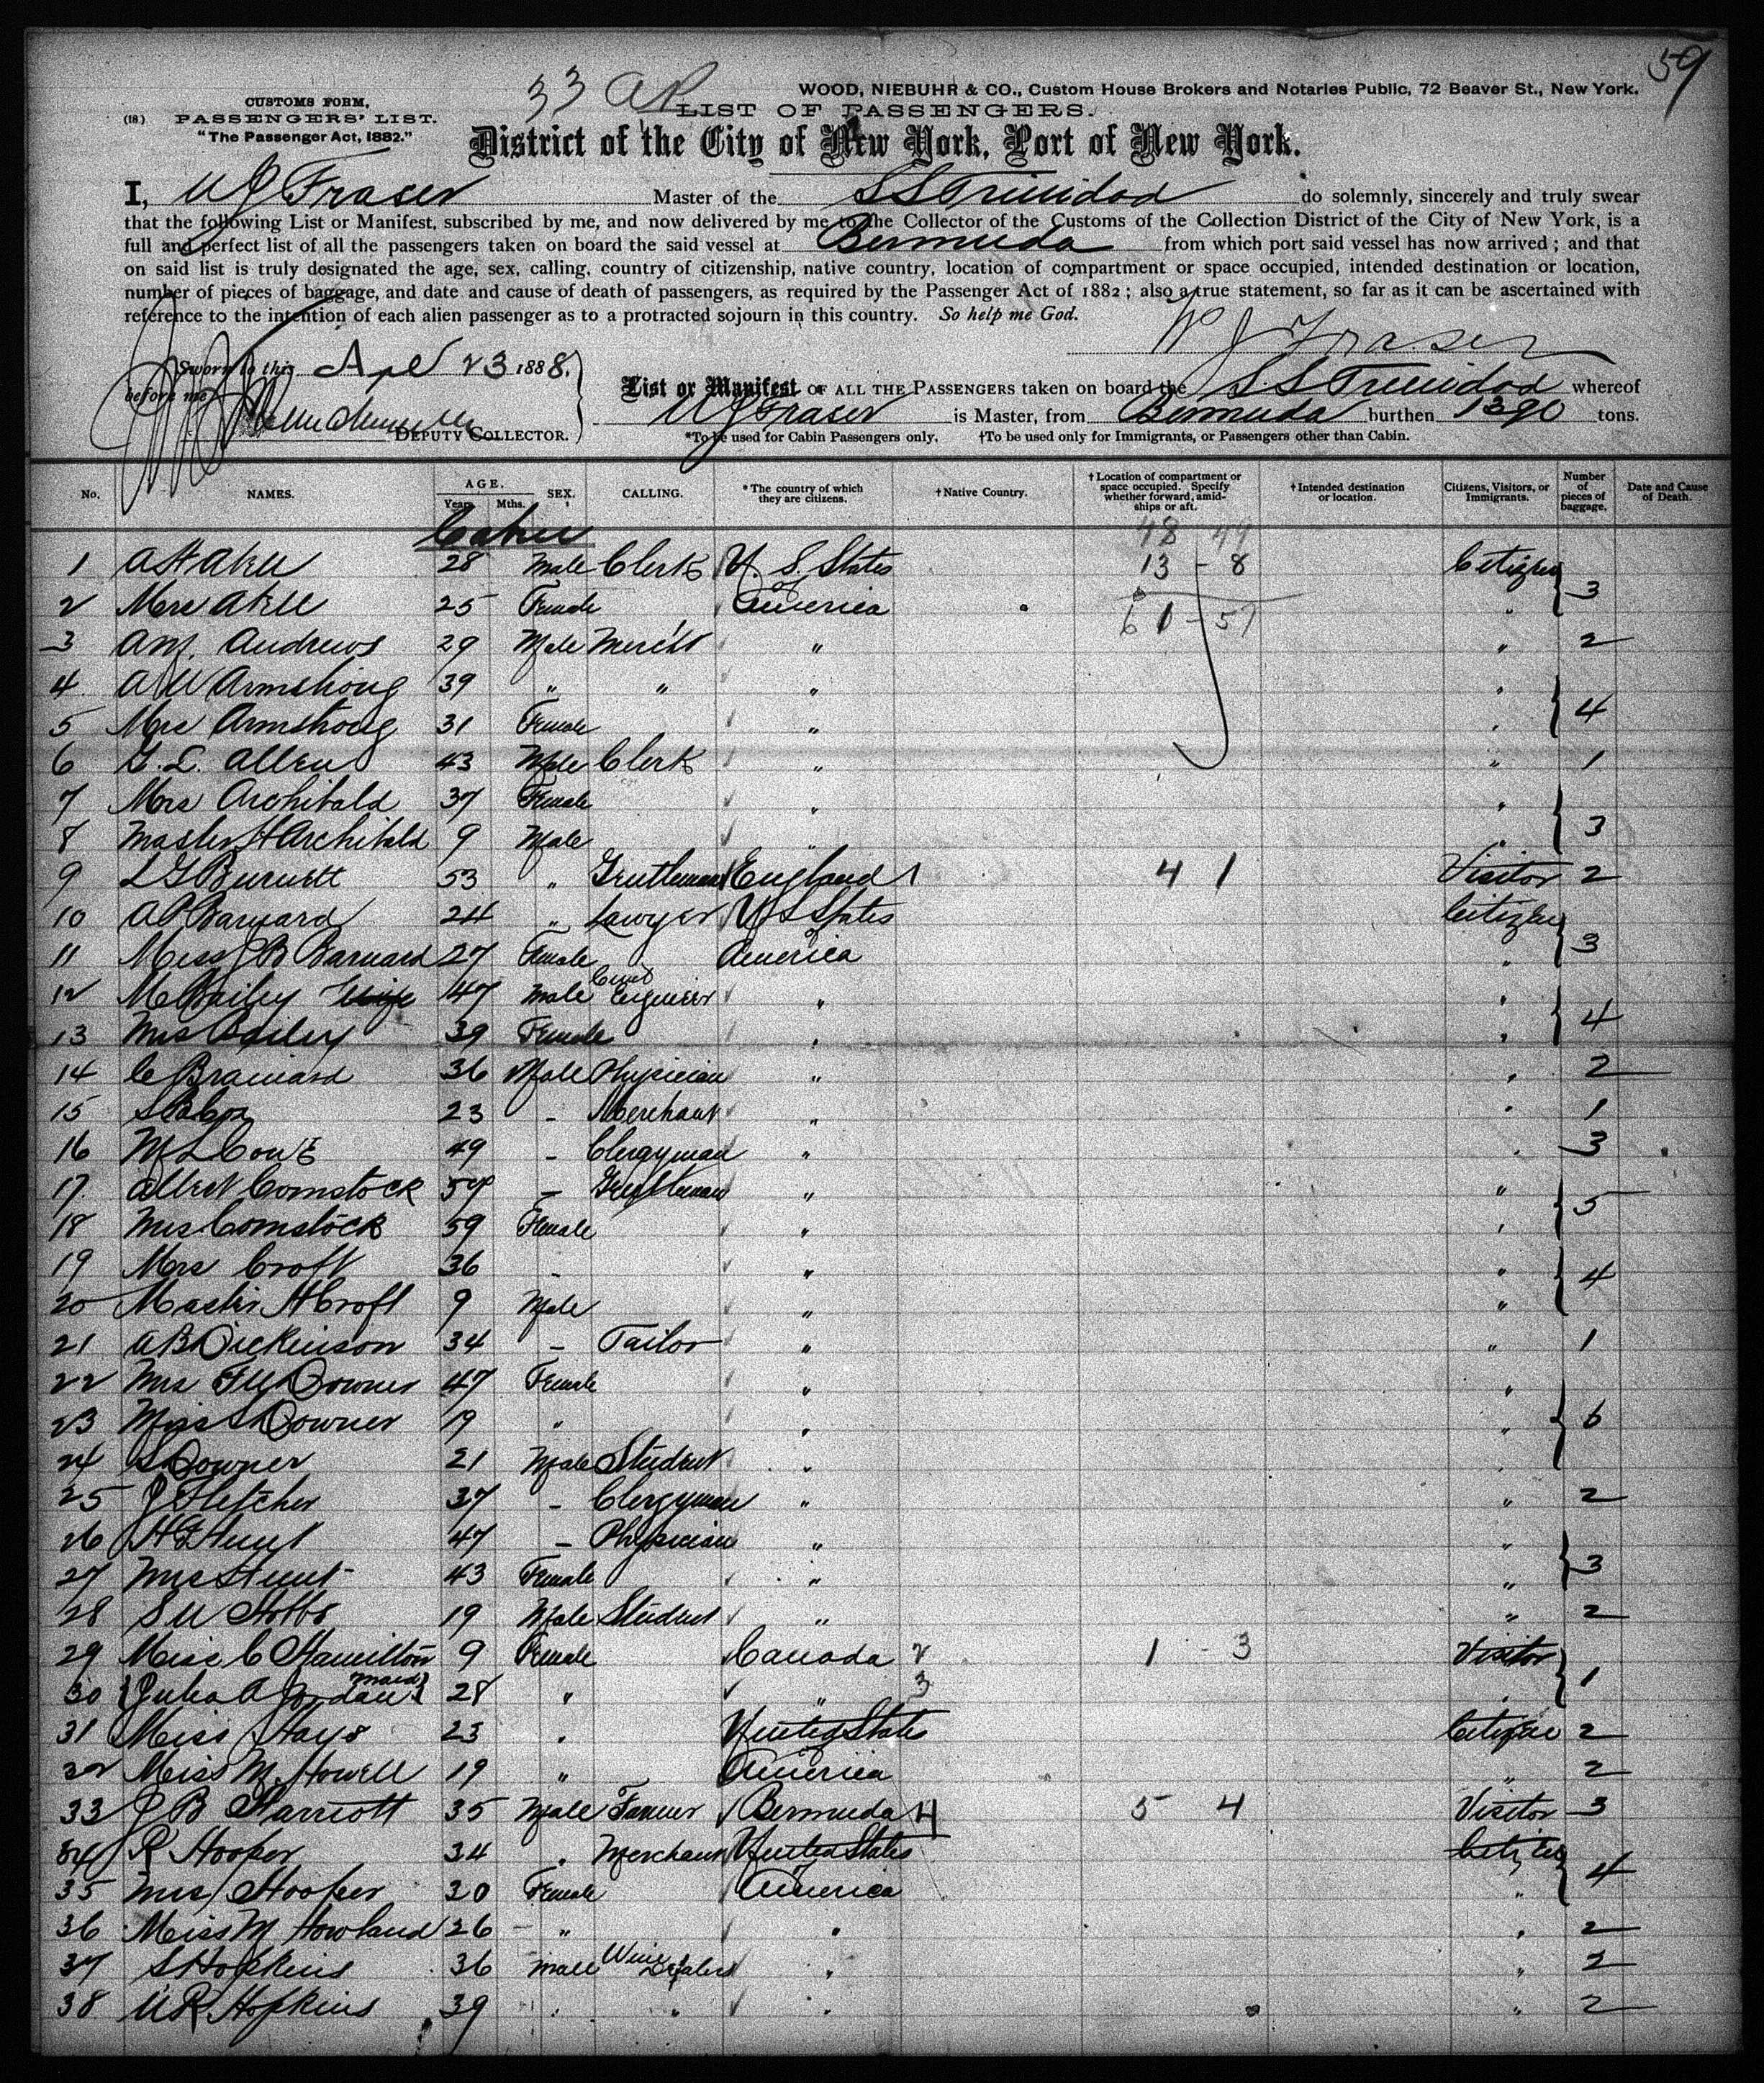 59
33 AR
WOOD, NIEBUHR & CO., Custom House Brokers and Notaries Public, 72 Beaver St., New York.
CUSTOMS FORM,
(18.) PASSENGERS' LIST.
"The Passenger Act, 1882."
LIST OF PASSENGERS.
District of the City of New York, Port of New York.
I, W J Fraser Master of the S S Trinidad do solemnly, sincerely and truly swear
that the following List or Manifest, subscribed by me, and now delivered by me to the Collector of the Customs of the Collection District of the City of New York, is a
full and perfect list of all the passengers taken on board the said vessel at Bermuda from which port said vessel has now arrived; and that
on said list is truly designated the age, sex, calling, country of citizenship, native country, location of compartment or space occupied, intended destination or location,
number of pieces of baggage, and date and cause of death of passengers, as required by the Passenger Act of 1882; also a true statement, so far as it can be ascertained with
reference to the intention of each alien passenger as to a protracted sojourn in this country. So help me God.
W J Fraser
Sworn to this April 23 1888.
before me
DEPUTY COLLECTOR.
List or Manifest OF ALL THE PASSENGERS taken on board the S.S Trinidad whereof
W J Fraser is Master, from Bermuda burthen 1390 tons.
*To be used for Cabin Passengers only. †To be used only for Immigrants, or Passengers other than Cabin.
No. NAMES. AGE. Years Mths. SEX. CALLING. *The country of which they are citizens. †Native Country. †Location of compartment or space occupied. Specify whether forward, amidships or aft. †Intended destination or location. Citizens, Visitors, or Immigrants. Number of pieces of baggage. Date and Cause of Death.
Cabin
48 - 49
1 28 Male Clerk U. S. States 13 - 8 Citizen
2 Mrs 25 Female of America " 3
61 - 57
3 Andrews 29 Male Mercht " " 2
4 A W Armstrong 39 " " " "
5 Mrs Armstrong 31 Female " " 4
6 G. L. Allen 43 Male Clerk " " 1
7 Mrs Archibald 37 Female " "
8 Master H Archibald 9 Male " " 3
9 L G Burnett 53 " Gentleman England 1 4 1 Visitor 2
10 A P Barnard 24 " Lawyer U S States Citizen
11 Miss J B Barnard 27 Female of America " 3
12 M Bailey 47 Male Civil Engineer " "
13 Mrs Bailey 39 Female " " 4
14 C Brainard 36 Male Physician " " 2
15 23 - Merchant " " 1
16 49 - Clergyman " " 3
17 Albert Comstock 57 - Gentleman " "
18 Mrs Comstock 59 Female " " 5
19 Mrs Croft 36 - " "
20 Master H Croft 9 Male " " 4
21 A B Dickinson 34 - Tailor " " 1
22 Mrs F W Downer 47 Female " "
23 Miss L Downer 19 " " " 6
24 S Downer 21 Male Student " "
25 J Fletcher 37 - Clergyman " " 2
26 H G Hunt 47 - Physician " "
27 Mrs Hunt 43 Female " " 3
28 S W Hobbs 19 Male Student " " 2
29 Miss C Hamilton 9 Female Canada 2 1 - 3 Visitor
30 {Julia A Jordan maid} 28 " " 3 " 1
31 Miss Hays 23 " United States Citizen 2
32 Miss M. Howell 19 " of America " 2
33 J B Harriott 35 Male Farmer Bermuda 4 5 4 Visitor 3
34 R Hooper 34 " Merchant United States Citizen
35 Mrs Hooper 30 Female of America " 4
36 Miss M Howland 26 " " " 2
37 S Hopkins 36 Male Wine Dealers " " 2
38 W R Hopkins 39 " " " " 2